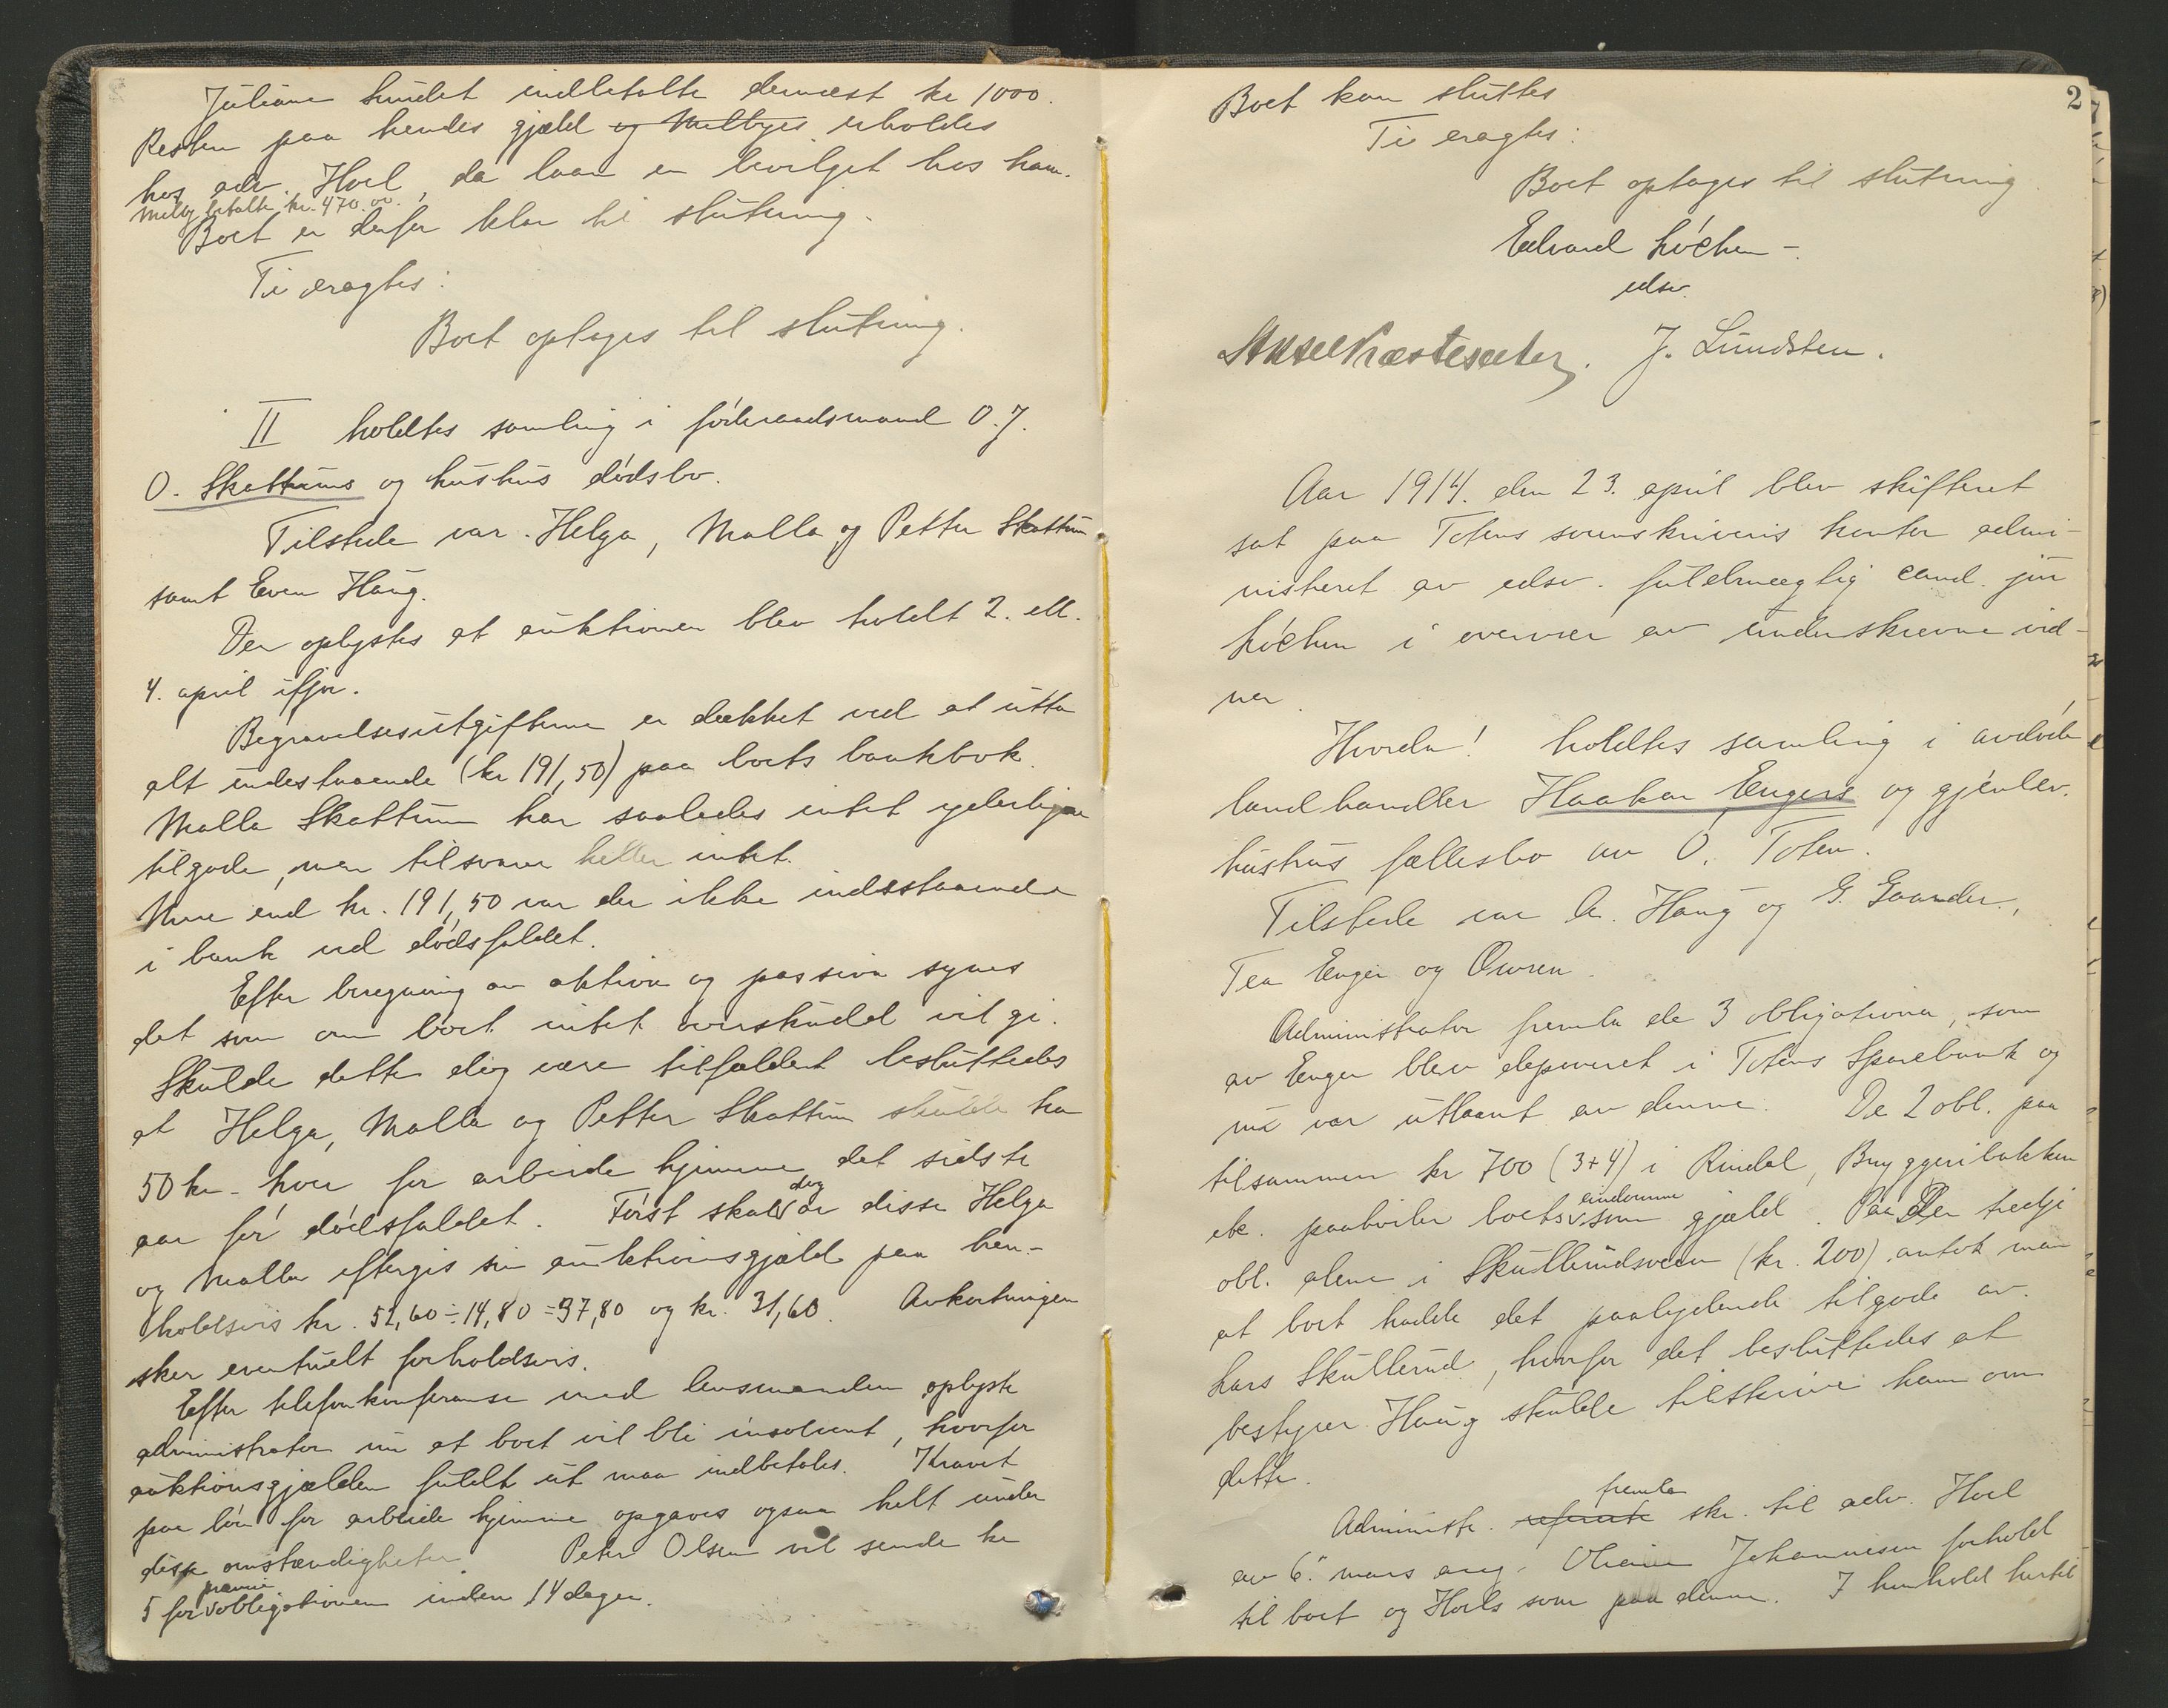 Juliane Sundet indbetalte dernæst kr 1000.
Resten paa hendes gjæld og Melbyes erholdes
hos adv. Hoel, da laan er bevilget hos ham.
Melby betalte kr. 470.00.
Boet er derfor klar til slutning.
Ti eragtes:
Boet optages til slutning.
II holdtes samling i föderaadsmand O. J.
O. Skattums og hustrus dödsbo.
Tilstede var Helga, Malla og Petter Skattum
samt Even Haug.
Der oplystes at auktionen blev holdt 2. ell.
4. april ifjor.
Begravelsesutgifterne er dækket ved at utta
alt indestaaende (kr 191,50) paa boets bankbok.
Malla Skattum har saaledes intet yderligere
tilgode, men tilsvarer heller intet.
Mere end kr. 191,50 var der ikke indestaaende
i bank ved dödsfaldet.
Efter beregning av aktiva og passiva synes
det som om boet intet overskudd vil gi.
Skulde dette dog være tilfældet besluttedes
at Helga, Malla og Petter Skattum skulde ha
50 kr. hver for arbeide hjemme det sidste
aar för dödsfaldet. Först skal dog av disse Helga
og Malla eftergis sin auktionsgjæld paa hen-
holdsvis kr. 52,60 ÷ 14,80 = 37,80 og kr. 31,60. Avkortningen
sker eventuelt forholdsvis.
Efter telefonkonferanse med lensmanden oplyste
administrator nu at boet vil bli insolvent, hvorfor
auktionsgjælden fuldt ut maa indbetales. Kravet
paa lön for arbeide hjemme opgaves ogsaa helt under
disse omstændigheter. Peter Olsen vil sende kr
5 for præmieobligationen inden 14 dager.
2
Boet kan sluttes
Ti eragtes:
Boet optages til slutning
Edvard Lóchen
edsv.
Aksel Præstesæter. J. Lundsten.
Aar 1914. den 23. april blev skifteret
sat paa Totens sorenskriveris kontor admi-
nistreret av edsv. fuldmægtig cand. jur
Lóchen i overvær av underskrevne vid-
ner.
Hvorda! holdtes samling i avdöde
landhandler Haakon Engers og gjenlev.
hustrus fællesbo av Ö. Toten.
Tilstede var A. Haug og G. Gaarder,
Tea Enger og Owren.
Administrator fremla de 3 obligationer, som
av Enger blev deponeret i Totens Sparebank og
nu var utlaant av denne. De 2 obl. paa
tilsammen kr 700 (3+4) i Rindal, Bryggeriløkken
etc. paahviler boets eiendomme som gjæld. Paa Den tredje
obl. alene i Skullerudsveen (kr. 200) antok man
at boet hadde det paalydende tilgode av
Lars Skullerud, hvorfor det besluttedes at
bestyrer Haug skulde tilskrive ham om
dette.
Administr. referérte fremla skr. til adv. Hoel
av 6. mars ang. Johannesen forhold
til boet og Hoels som paa denne. I henhold hertil